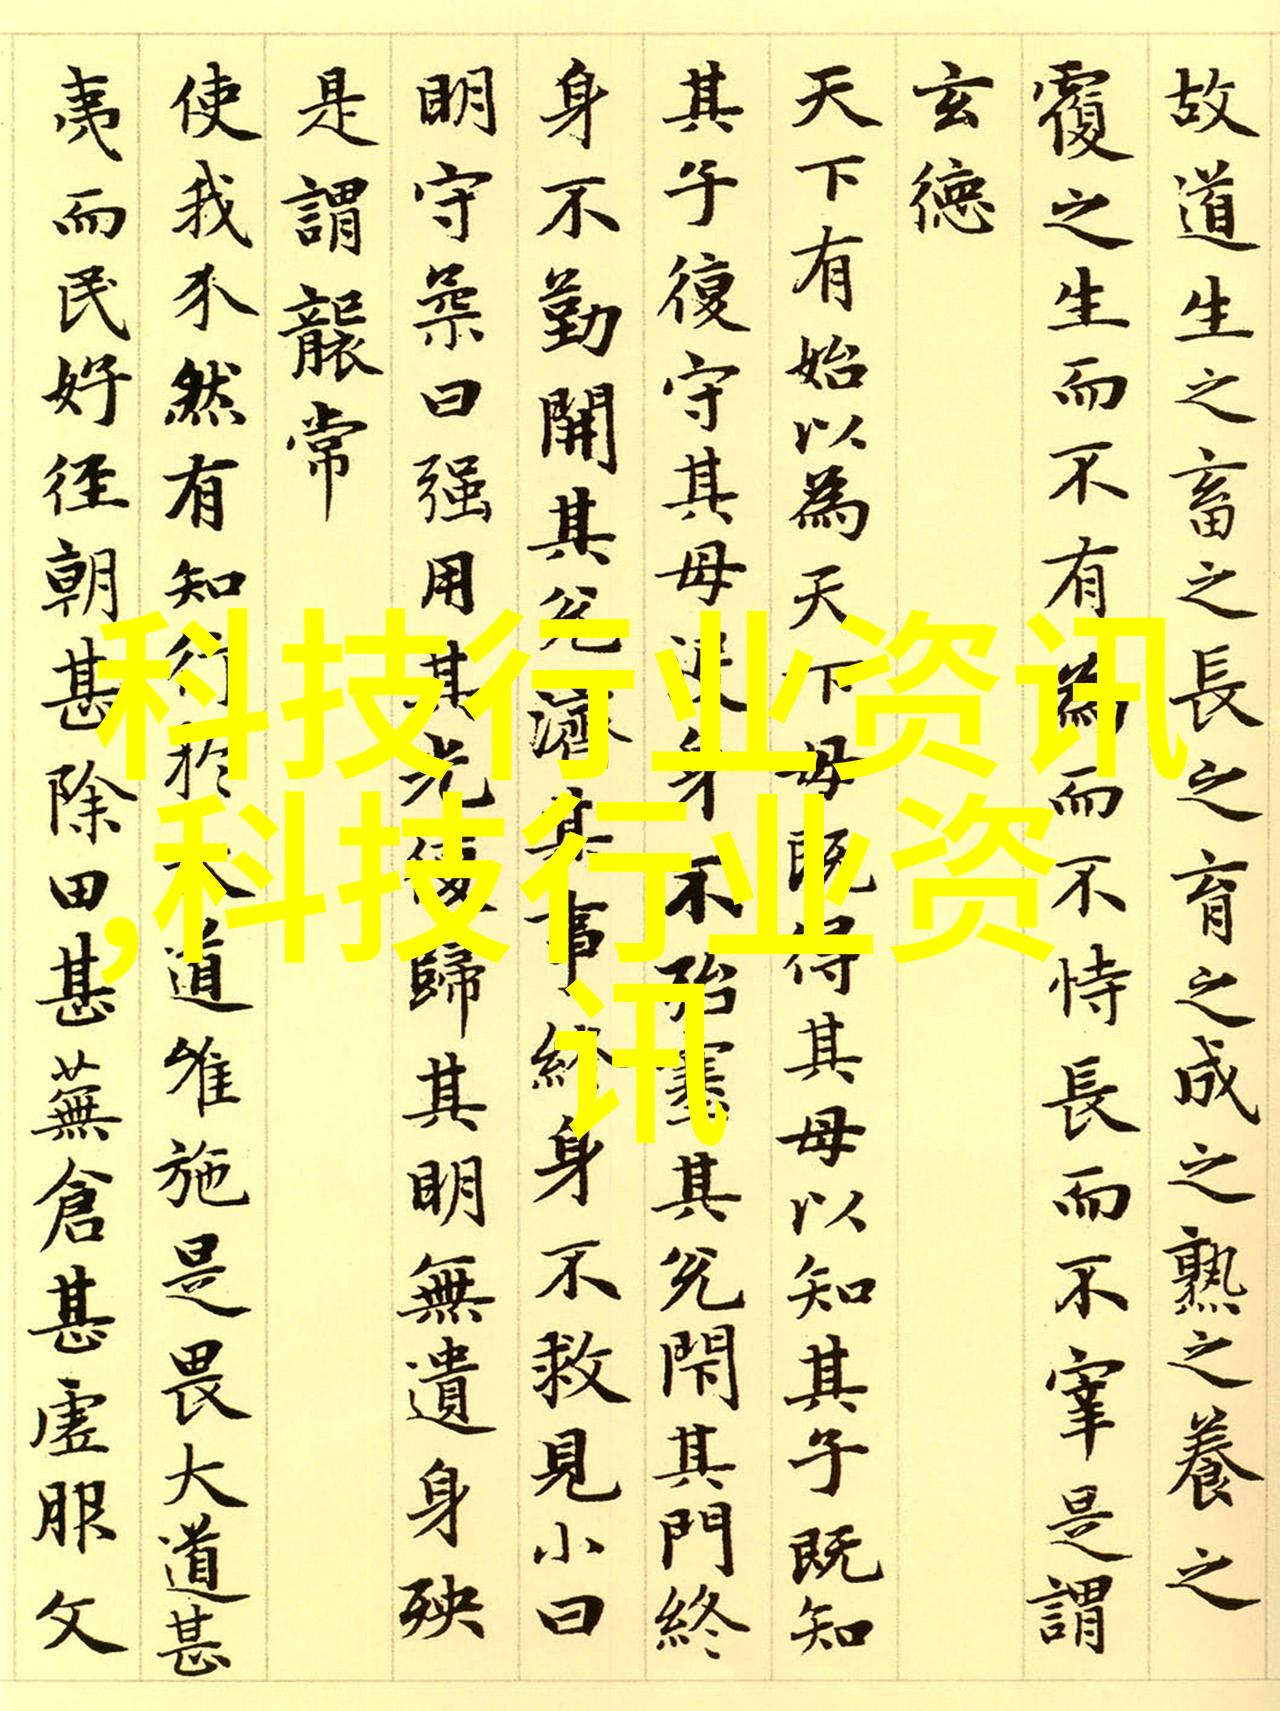 故道生之畜之長之育之成之熟之養之
覆之生而不有為而不恃長而不宰是謂
玄德
天下有始以為天下母既得其母以知其子既知
其子復守其母没身不殆塞其兊閇其門終
身不勤開其兊濟其事終身不救見小曰
明守柔曰强用其光復歸其明無遺身殃
是謂襲常
使我介然有知行於大道唯施是畏大道甚
夷而民好徑朝甚除田甚蕪倉甚虚服文
科技行业资讯
,科技行业资
讯